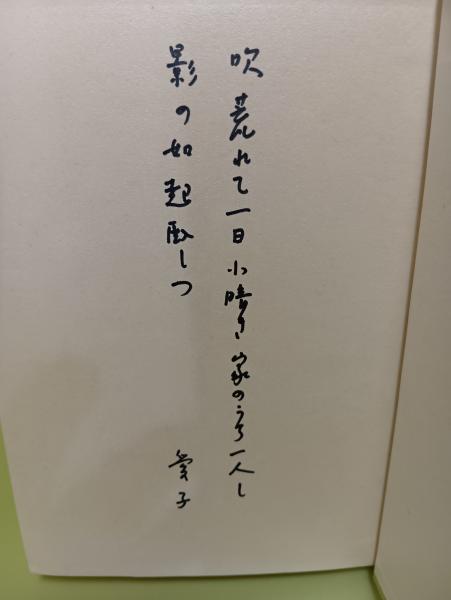 吹荒れて一日小暗き家のうち一人し
影の如起臥しつ
愛子